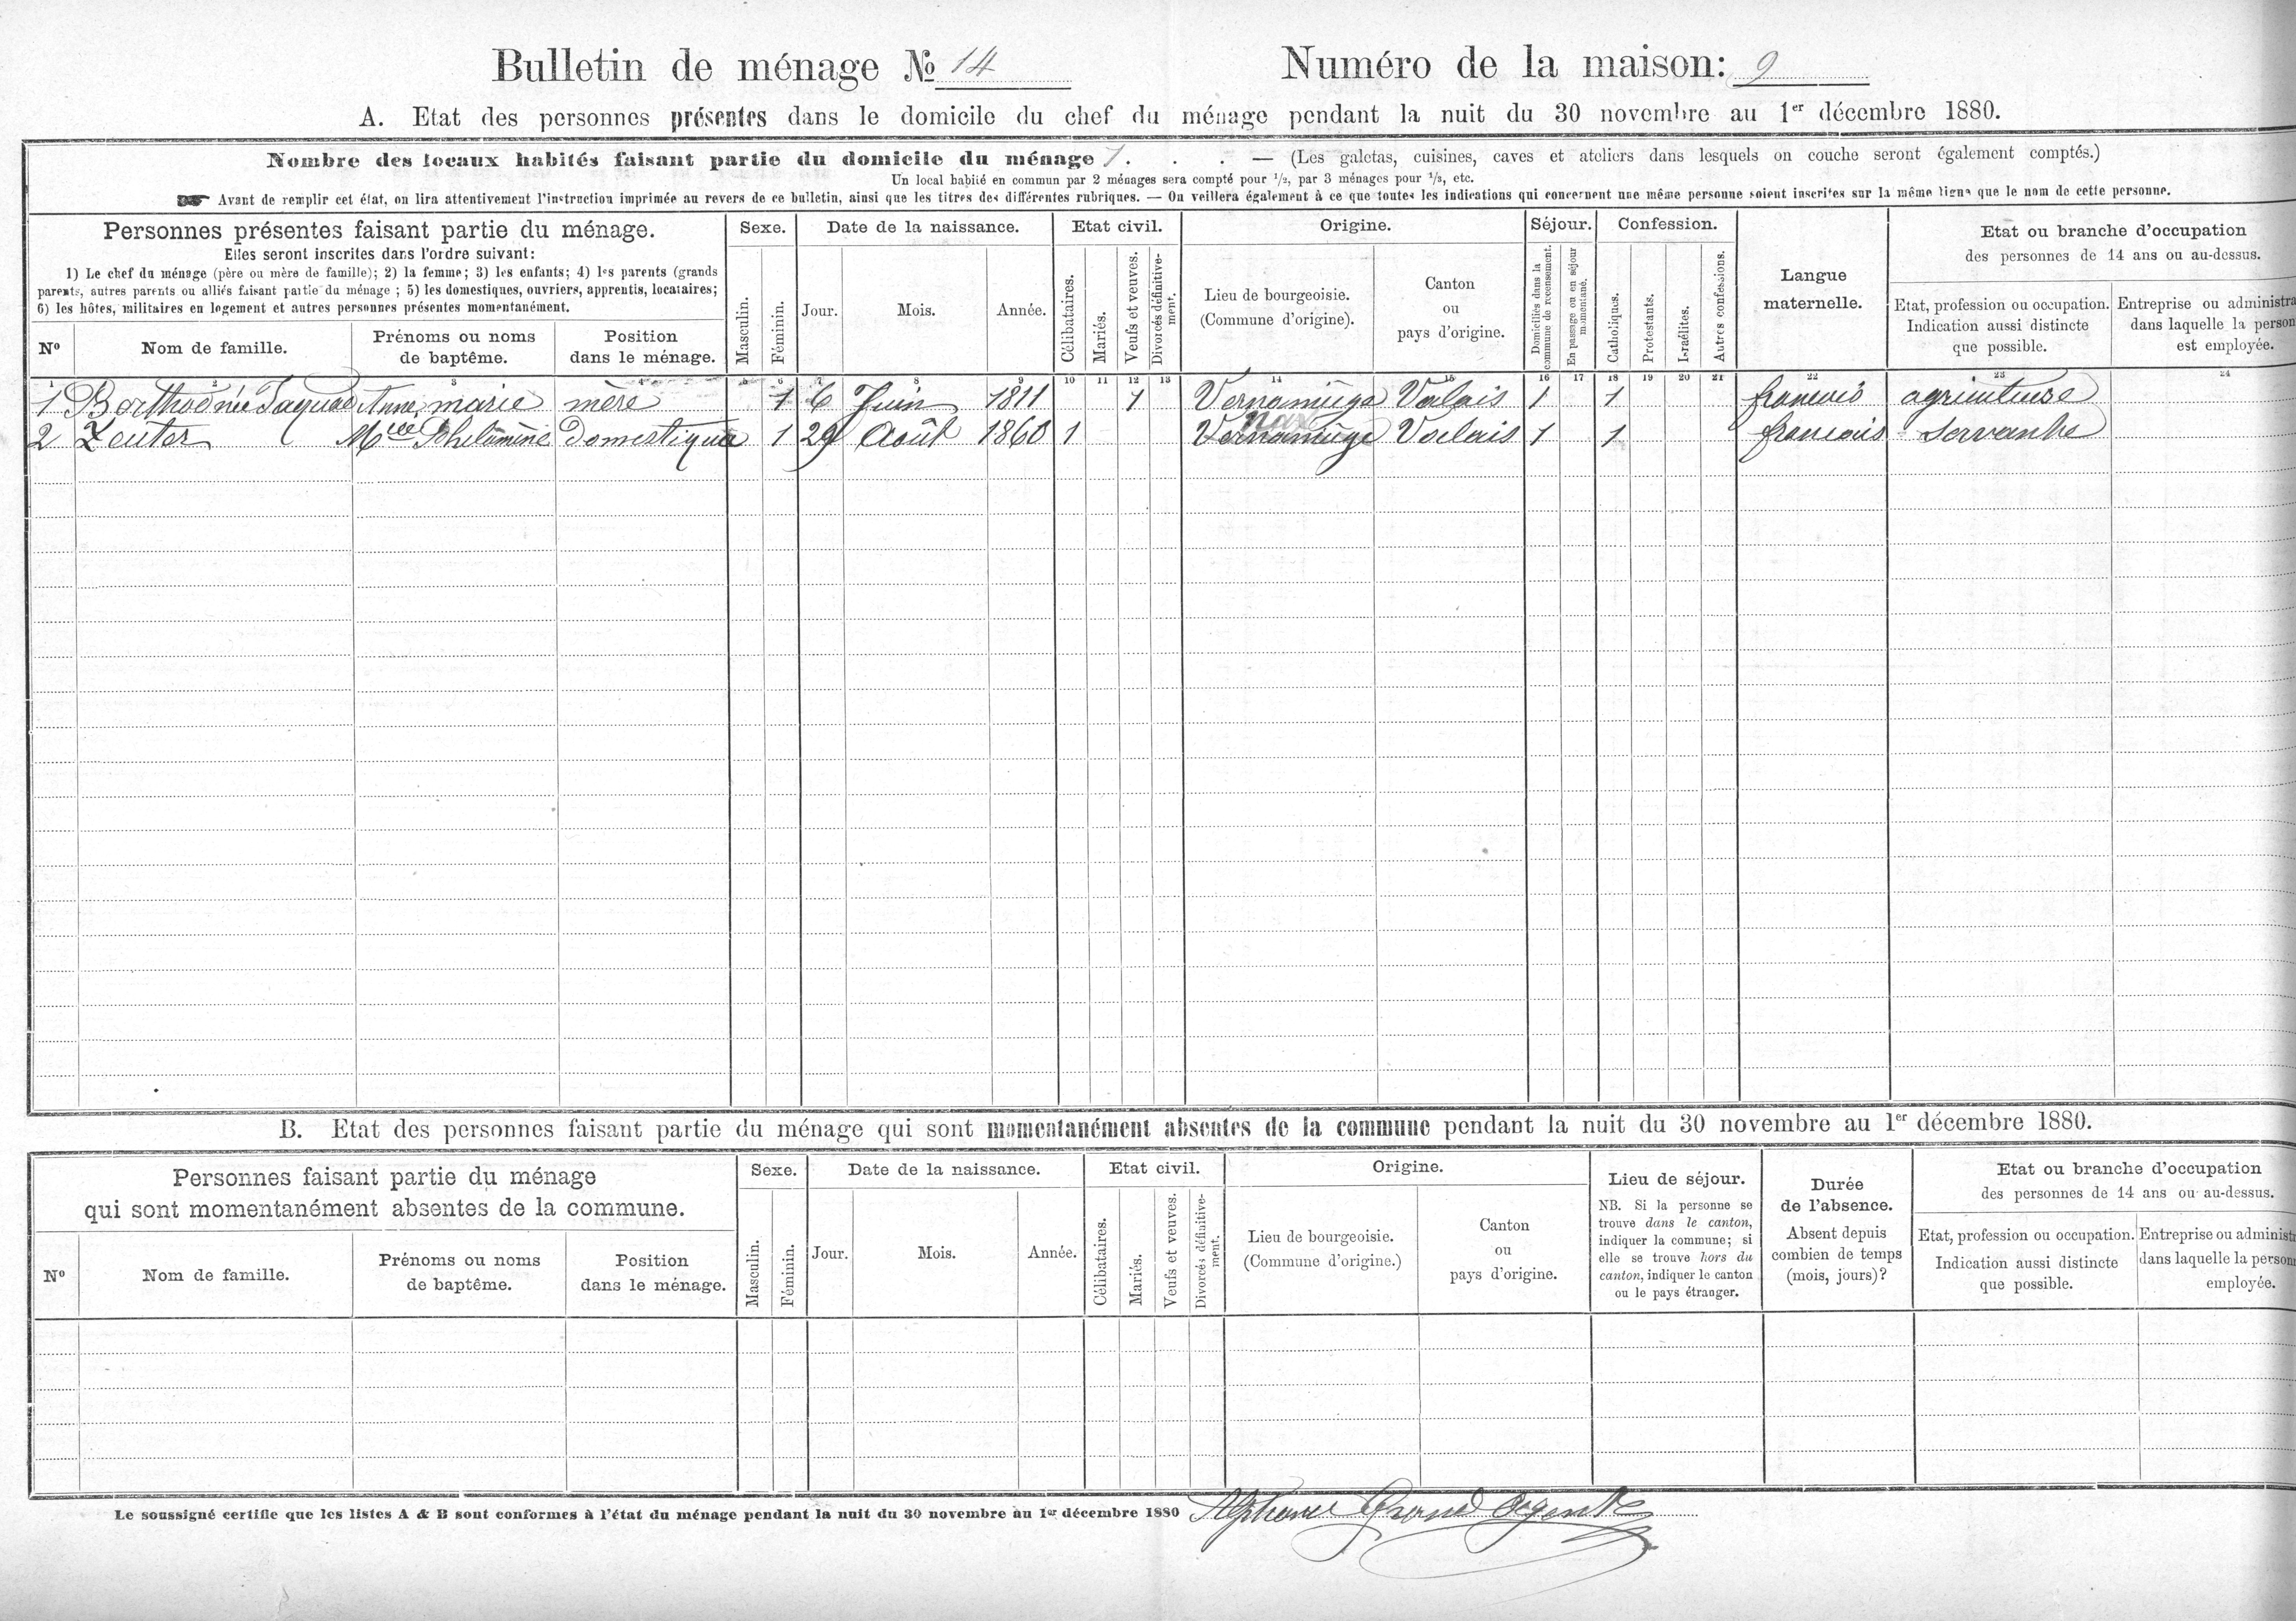 Bulletin de ménage № 14
Numéro de la maison: 9
A. Etat des personnes présentes dans le domicile du chef du ménage pendant la nuit du 30 novembre au 1er décembre 1880.
Nombre des locaux habités faisant partie du domicile du ménage 1 . . . — (Les galetas, cuisines, caves et ateliers dans lesquels on couche seront également comptés.)
Un local habité en commun par 2 ménages sera compté pour 1/2, par 3 ménages pour 1/3, etc.
☛ Avant de remplir cet état, on lira attentivement l'instruction imprimée au revers de ce bulletin, ainsi que les titres des différentes rubriques. — On veillera également à ce que toutes les indications qui concernent une même personne soient inscrites sur la même ligne que le nom de cette personne.
Personnes présentes faisant partie du ménage.
Elles seront inscrites dans l'ordre suivant:
1) Le chef du ménage (père ou mère de famille); 2) la femme; 3) les enfants; 4) les parents (grands
parents, autres parents ou alliés faisant partie du ménage ; 5) les domestiques, ouvriers, apprentis, locataires;
6) les hôtes, militaires en logement et autres personnes présentes momentanément.
Nº
Nom de famille.
Prénoms ou noms
de baptême.
Position
dans le ménage.
Sexe.
Masculin.
Féminin.
Date de la naissance.
Jour.
Mois.
Année.
Etat civil.
Célibataires.
Mariés.
Veufs et veuves.
Divorcés définitive-
ment.
Origine.
Lieu de bourgeoisie.
(Commune d'origine).
Canton
ou
pays d'origine.
Séjour.
Domiciliés dans la
commune de recensement.
En passage ou en séjour
momentané.
Confession.
Catholiques.
Protestants.
Israélites.
Autres confessions.
Langue
maternelle.
Etat ou branche d'occupation
des personnes de 14 ans ou au-dessus.
Etat, profession ou occupation.
Indication aussi distincte
que possible.
Entreprise ou administra
dans laquelle la person
est employée.
1 2 3 4 5 6 7 8 9 10 11 12 13 14 15 16 17 18 19 20 21 22 23 24
1 Berthod née Jaquod Anne marie mère 1 6 Juin 1811 1 Vernamiège Valais 1 1 francais agriculteuse
Nax
2 Zeuter Mlle Philimine Domestique 1 29 Août 1860 1 Vernamiège Valais 1 1 francais Servante
B. Etat des personnes faisant partie du ménage qui sont momentanément absentes de la commune pendant la nuit du 30 novembre au 1er décembre 1880.
Personnes faisant partie du ménage
qui sont momentanément absentes de la commune.
Nº
Nom de famille.
Prénoms ou noms
de baptême.
Position
dans le ménage.
Sexe.
Masculin.
Féminin.
Date de la naissance.
Jour.
Mois.
Année.
Etat civil.
Célibataires.
Mariés.
Veufs et veuves.
Divorcés définitive-
ment.
Origine.
Lieu de bourgeoisie.
(Commune d'origine.)
Canton
ou
pays d'origine.
Lieu de séjour.
NB. Si la personne se
trouve dans le canton,
indiquer la commune; si
elle se trouve hors du
canton, indiquer le canton
ou le pays étranger.
Durée
de l'absence.
Absent depuis
combien de temps
(mois, jours)?
Etat ou branche d'occupation
des personnes de 14 ans ou au-dessus.
Etat, profession ou occupation.
Indication aussi distincte
que possible.
Entreprise ou administ
dans laquelle la person
employée.
Le soussigné certifie que les listes A & B sont conformes à l'état du ménage pendant la nuit du 30 novembre au 1er décembre 1880 Alphonse Grand Agente